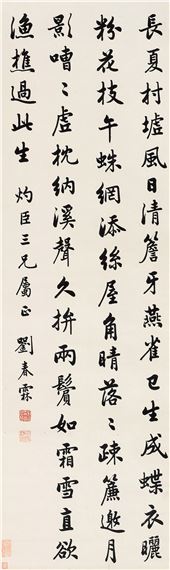 長夏村墟風日清簷牙燕雀已生成蝶衣曬
粉花枝午蛛網添絲屋角晴落〻疎簾邀月
影嘈〻虛枕納溪聲久拚兩鬢如霜雪直欲
漁樵過此生 灼臣三兄屬正 劉春霖